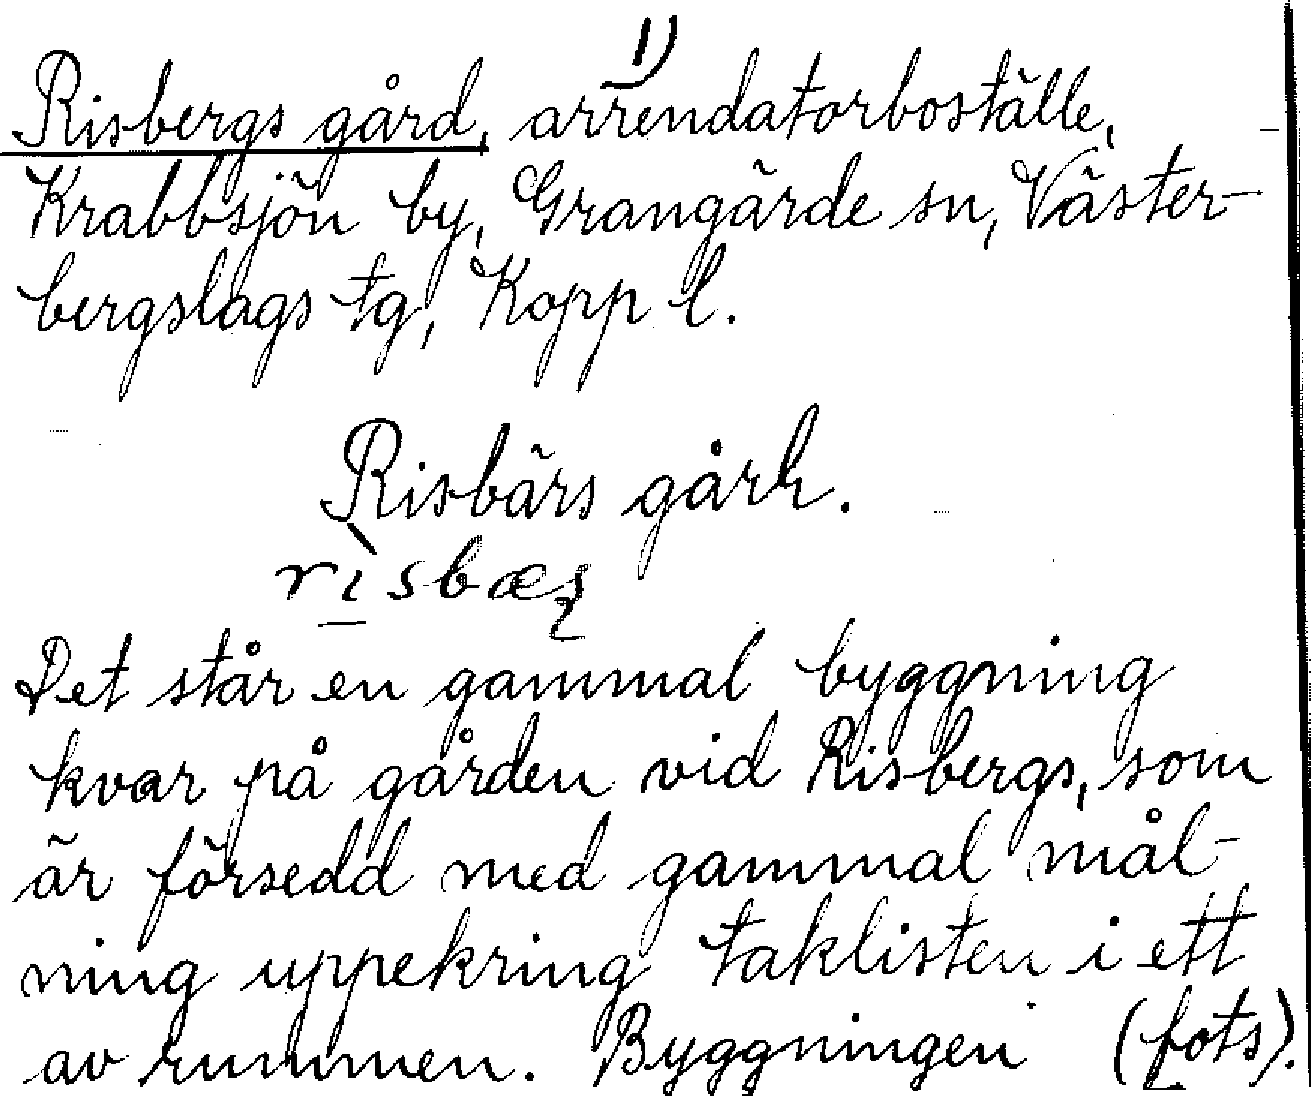 1)
Risbergs gård, arrendatorboställe,
Krabbsjön by, Grangärde sn, Väster-
bergslags tg, Kopp l.
Risbärs gårh.
rìsbæʂ
Det står en gammal byggning
kvar på gården vid Risbergs, som
är försedd med gammal mål-
ning uppekring taklisten i ett
av rummen. Byggningen (fots).